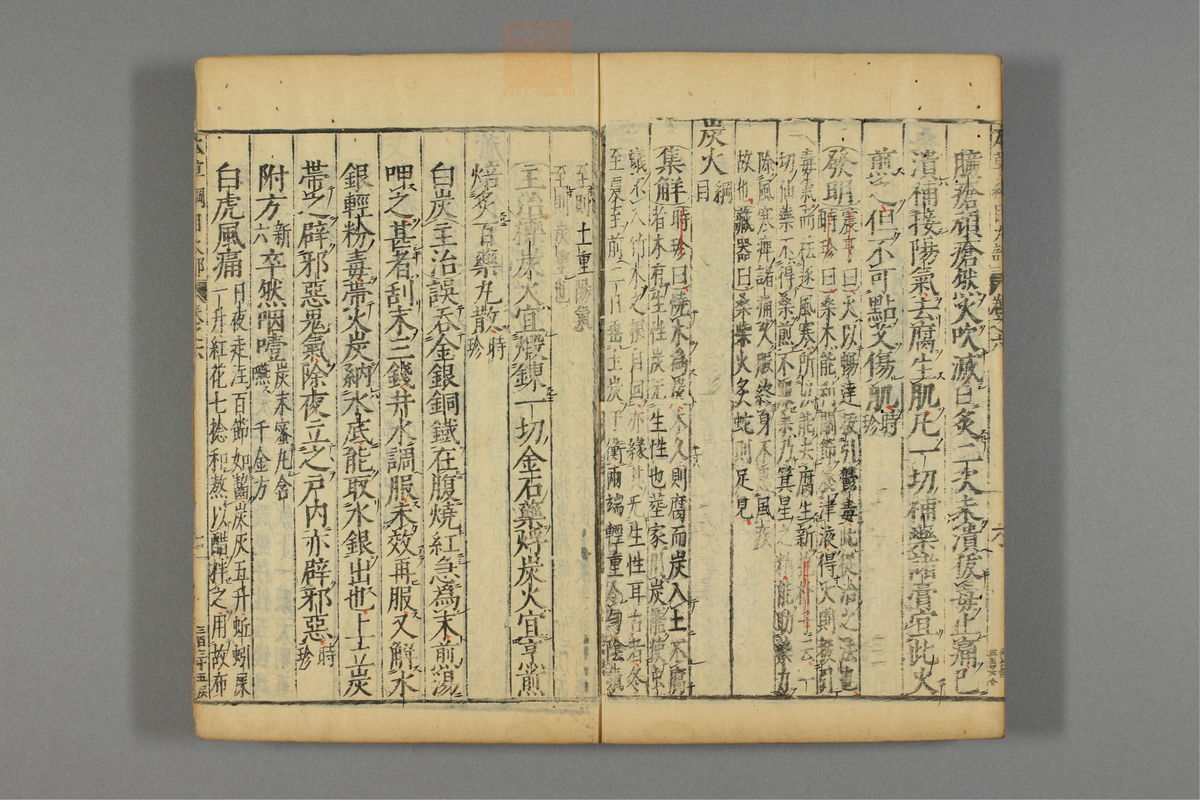 臁瘡頑瘡然火吹滅日炙二次未潰拔毒止痛已
潰補接陽氣去腐生肌凡一切補藥諸膏宜此火
煎之但不可點艾傷肌時珍
發明震亨曰火以暢達拔引鬱毒此從治之法也
時珍曰桑木能利關節養津液得火則拔引
毒氣而祛逐風寒所以能去腐生新
切仙藥不得桑煎不服桑乃箕星之精能助藥力
除風寒痺諸痛久服終身不患風疾
故也藏器曰桑柴火炙蛇則足見
炭火綱目
集解時珍曰燒木為炭木久則腐而炭入土不腐
者木有生性炭无生性也葬家用炭能使蟲
蟻不入竹木之根自回亦緣其无生性耳古者冬
至夏至前二日垂土炭于衡兩端輕重令勻陰氣
至則土重陽氣
至則炭重也
主治櫟炭火宜煅鍊一切金石藥烰炭火宜烹煎
焙炙百藥丸散時珍
白炭主治誤吞金銀銅鐵在腹燒紅急為末煎湯
呷之甚者刮末三錢井水調服未效再服又解水
銀輕粉毒帶火炭納水底能取水銀出也上立炭
帶之辟邪惡鬼氣除夜立之戶內亦辟邪惡時珍
附方新六卒然咽噎炭末蜜丸含嚥千金方
白虎風痛日夜走注百節如齧炭灰五升蚯蚓屎
一升紅花七捻和熬以醋拌之用故布